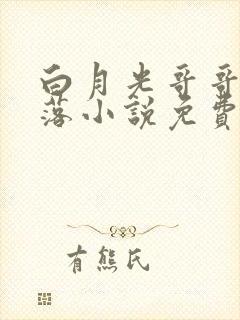 白月光哥哥
落小說免費
有熊氏